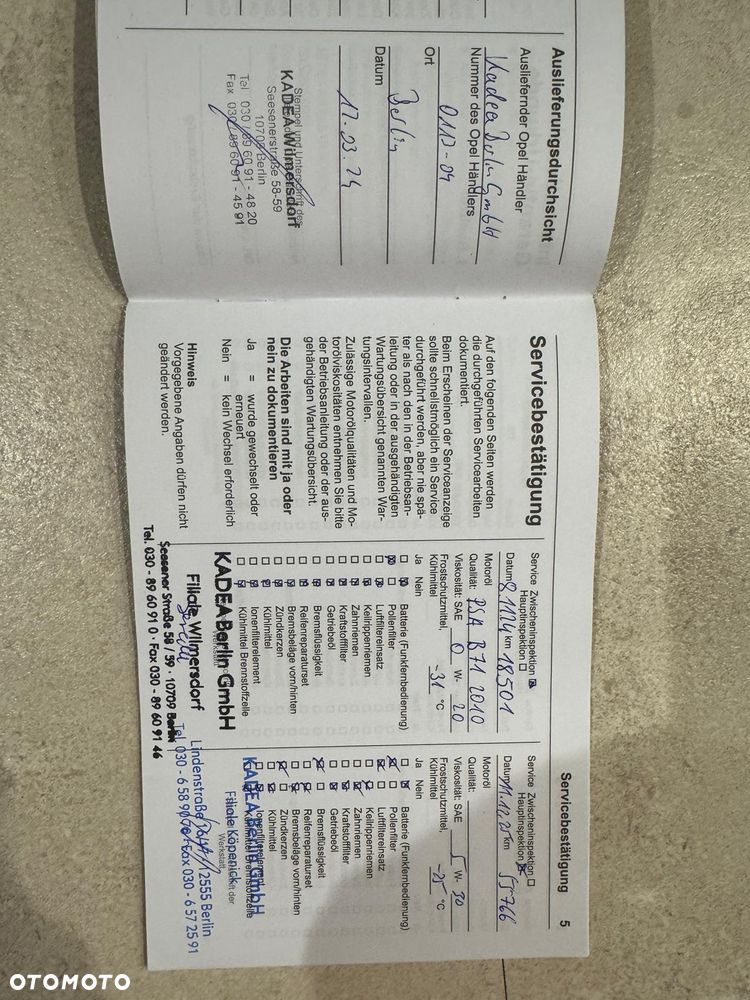 Auslieferungsdurchsicht
Ausliefernder Opel Händler
Kadea Berlin GmbH
Nummer des Opel Händlers
0113-04
Ort
Berlin
Datum
Stempel und Unterschrift des
KADEA Wilmersdorf
Seesenerstraße 58-59
10709 Berlin
Tel 030 / 89 60 91 - 48 20
Fax 030 / 89 60 91 - 45 91
Servicebestätigung
Auf den folgenden Seiten werden
die durchgeführten Servicearbeiten
dokumentiert.
Beim Erscheinen der Serviceanzeige
sollte schnellstmöglich ein Service
durchgeführt werden, aber nie spä-
ter als nach den in der Betriebsan-
leitung oder in der ausgehändigten
Wartungsübersicht genannten War-
tungsintervallen.
Zulässige Motorölqualitäten und Mo-
torölviskositäten entnehmen Sie bitte
der Betriebsanleitung oder der aus-
gehändigten Wartungsübersicht.
Die Arbeiten sind mit ja oder
nein zu dokumentieren
Ja = wurde gewechselt oder
erneuert
Nein = kein Wechsel erforderlich
Hinweis
Vorgegebene Angaben dürfen nicht
geändert werden.
Service Zwischeninspektion
Hauptinspektion
Datum 8.11.24 km 18501
Motoröl
Qualität: PSA B71 2010
Viskosität: SAE 0 W- 20
Frostschutzmittel,
Kühlmittel -31 °C
Ja Nein
Batterie (Funkfernbedienung)
Pollenfilter
Luftfiltereinsatz
Keilrippenriemen
Zahnriemen
Kraftstofffilter
Getriebeöl
Bremsflüssigkeit
Reifenreparaturset
Bremsbeläge vorn/hinten
Zündkerzen
Kühlmittel
Ionenfilterelement
Kühlmittel Brennstoffzelle
KADEA Berlin GmbH
Filiale Wilmersdorf
Seesener Straße 58 / 59 · 10709 Berlin
Tel. 030 - 89 60 91 0 · Fax 030 - 89 60 91 46
Servicebestätigung 5
Service Zwischeninspektion
Hauptinspektion
Datum 11.12.25 km 55766
Motoröl
Qualität:
Viskosität: SAE 5 W- 30
Frostschutzmittel,
Kühlmittel -25 °C
Ja Nein
Batterie (Funkfernbedienung)
Pollenfilter
Luftfiltereinsatz
Keilrippenriemen
Zahnriemen
Kraftstofffilter
Getriebeöl
Bremsflüssigkeit
Reifenreparaturset
Bremsbeläge vorn/hinten
Zündkerzen
Kühlmittel
Ionenfilterelement
Kühlmittel Brennstoffzelle
KADEA Berlin GmbH
Filiale Köpenick
Werkstatt
Lindenstraße 12555 Berlin
Tel. 030 - 6 58 90 Fax 030 - 6 57 25 91
OTOMOTO